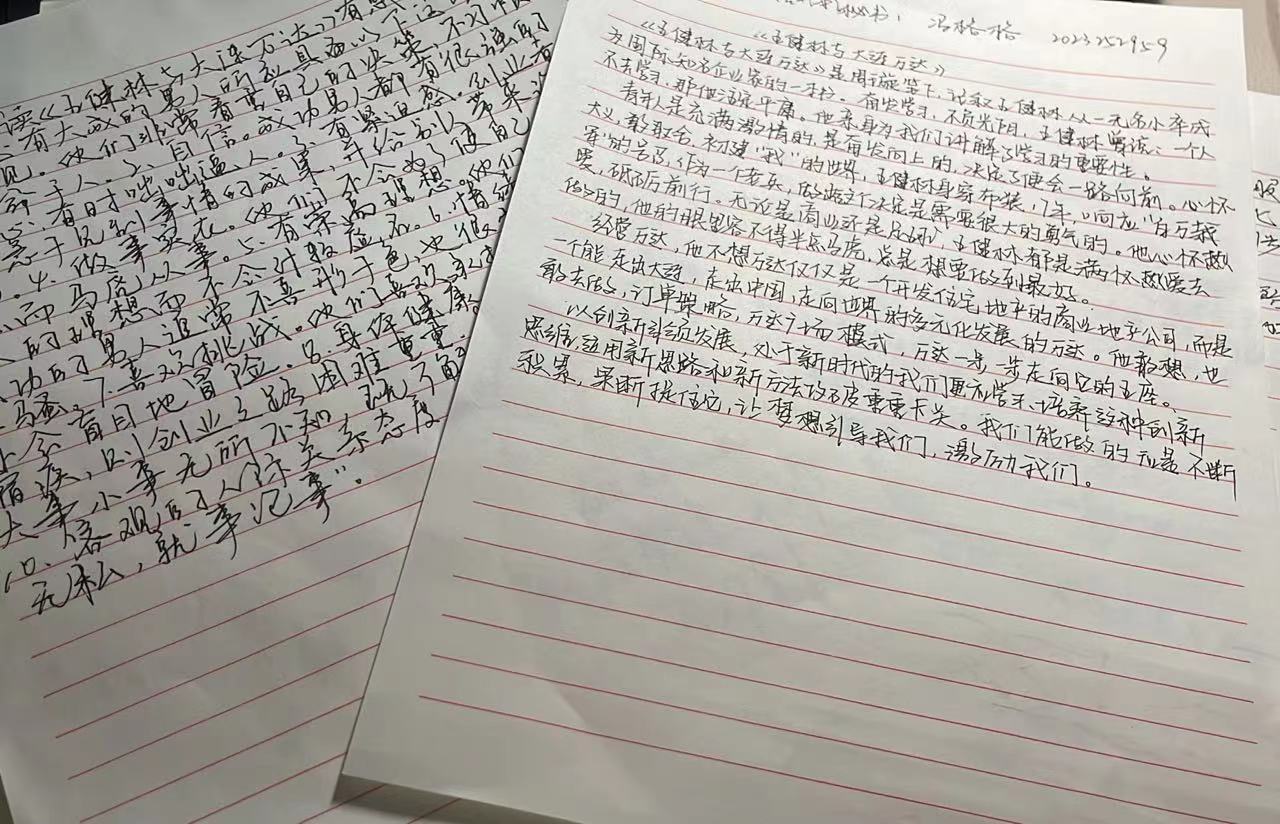 读《王健林与大连万达》有感
有大成的男人所
见。他们非常看重自己的决策，不对
人。2、自信。成功男人都有很强的
，有时咄咄逼人。3、有紧迫感。创业者
急于见到事情的成果，并给别人带来
。4、做事实在。他们不会为了使自己
而马虎从事。5、有崇高理想。他们
的理想而不会计较虚名。6、情绪
功的男人通常不喜形于色，也很
骚。7、喜欢挑战。他们喜欢承
不会盲目地冒险。8、身体健康
宿疾，则创业之路困难重重
大事小事无所不知，既了解
10、客观的人际关系态度
无私，就事论事"。
秘书：冯格格 2023252959
《王健林与大连万达》
《王健林与大连万达》是周璇笔下，记叙王健林从一无名小卒成
为国际知名企业家的一书。奋发学习，不负光阴，王健林曾说：一个人
不去学习，那他注定平庸。他亲身为我们讲解了学习的重要性。
青年人是充满激情的，是奋发向上的，决定了便会一路向前。心怀
大义，敢取舍。初建"我"的世界，王健林身穿布装，17年，响应"百万裁
军"的号召，作为一个老兵，做出这个决定是需要很大的勇气的。他心怀热
爱，砥砺前行。无论是商业还是足球，王健林都是满怀热爱去
做的，他的眼里容不得半点马虎，总是想要做到最好。
经营万达，他不想万达仅仅是一个开发住宅地产的商业地产公司，而是
一个能走出大连，走出中国，走向世界的多元化发展的万达。他敢想，也
敢去做，订单策略，万达广场模式，万达一步一步走向它的王座。
以创新引领发展，处于新时代的我们更需学习、培养这种创新
思维，运用新思路和新方法攻破重重关头。我们能做的就是不断
积累，果断抓住它，让梦想引导我们，激励我们。